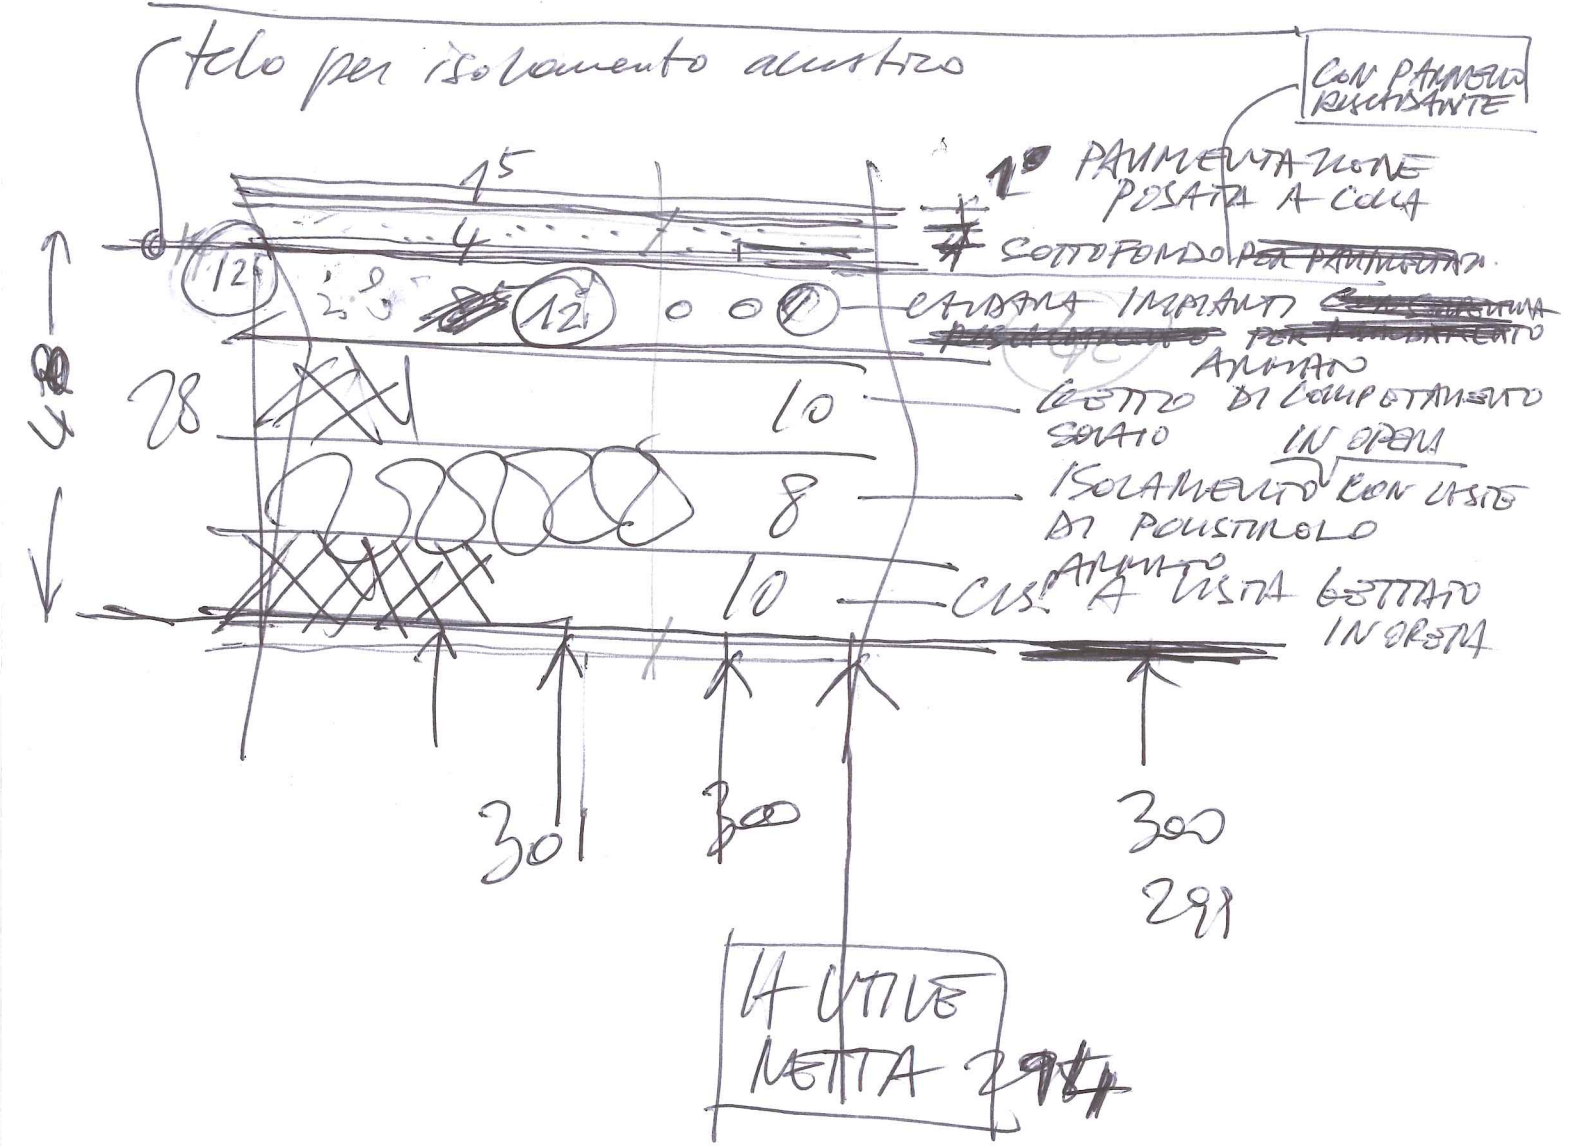 telo per isolamento acustico
CON PANNELLO
RISCALDANTE
1⁵
PAVIMENTAZIONE
POSATA A COLLA
4
4 SOTTOFONDO
12
12
CALDANA IMPIANTI
ARMATO
28
10
GETTO DI COMPLETAMENTO
SOLAIO IN OPERA
8
ISOLAMENTO CON LASTE
DI POLISTIROLO
ARMATO
10
CLS. A VISTA GETTATO
IN OPERA
301
300
300
291
H UTILE
NETTA